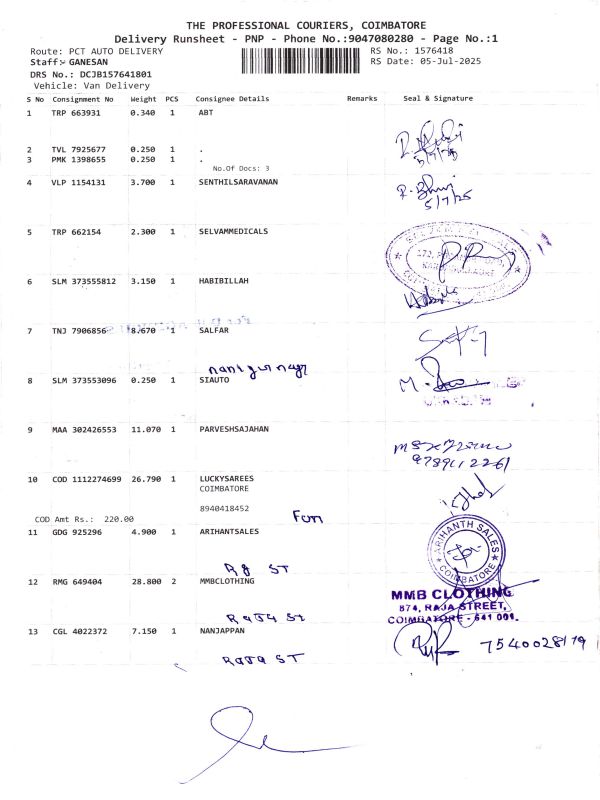 THE PROFESSIONAL COURIERS, COIMBATORE
Delivery Runsheet - PNP - Phone No.:9047080280 - Page No.:1
Route: PCT AUTO DELIVERY RS No.: 1576418
Staff:- GANESAN RS Date: 05-Jul-2025
DRS No.: DCJB157641801
Vehicle: Van Delivery
S No Consignment No Weight PCS Consignee Details Remarks Seal & Signature
1 TRP 663931 0.340 1 ABT
2 TVL 7925677 0.250 1 .
3 PMK 1398655 0.250 1 .
5/7/25
No.Of Docs: 3
4 VLP 1154131 3.700 1 SENTHILSARAVANAN
5/7/25
5 TRP 662154 2.300 1 SELVAMMEDICALS
6 SLM 373555812 3.150 1 HABIBILLAH
7 TNJ 7906856 8.670 1 SALFAR
8 SLM 373553096 0.250 1 SIAUTO
M.
9 MAA 302426553 11.070 1 PARVESHSAJAHAN
9789112261
10 COD 1112274699 26.790 1 LUCKYSAREES
COIMBATORE
8940418452
COD Amt Rs.: 220.00
11 GDG 925296 4.900 1 ARIHANTSALES
ARIHANTH SALES
COIMBATORE
RJ ST
12 RMG 649404 28.800 2 MMBCLOTHING
MMB CLOTHING
874, RAJA STREET,
COIMBATORE - 641 001.
RAJA ST
13 CGL 4022372 7.150 1 NANJAPPAN
7540028179
RAJA ST